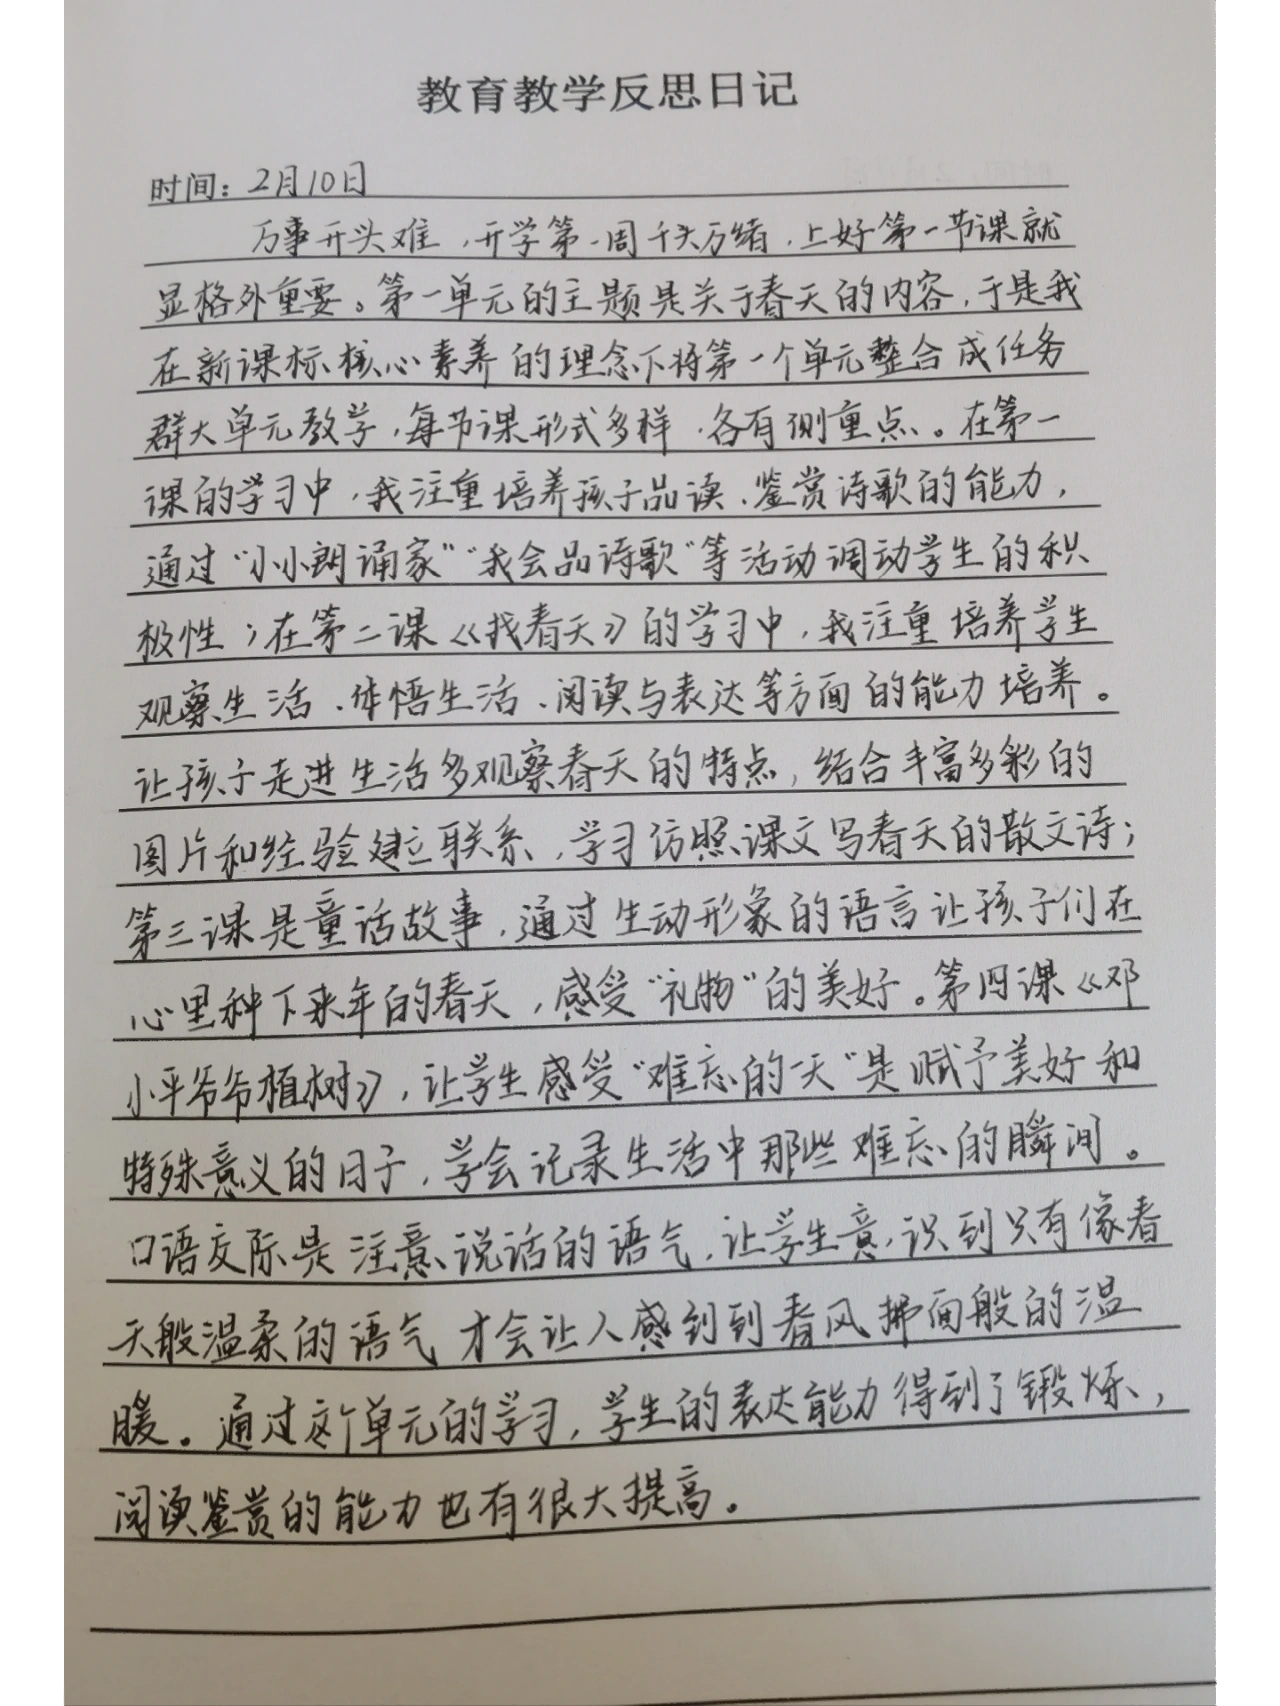 教育教学反思日记
时间：2月10日
万事开头难，开学第一周千头万绪，上好第一节课就
显格外重要。第一单元的主题是关于春天的内容，于是我
在新课标核心素养的理念下将第一个单元整合成任务
群大单元教学，每节课形式多样，各有侧重点。在第一
课的学习中，我注重培养孩子品读、鉴赏诗歌的能力，
通过“小小朗诵家”“我会品诗歌”等活动调动学生的积
极性；在第二课《找春天》的学习中，我注重培养学生
观察生活、体悟生活、阅读与表达等方面的能力培养。
让孩子走进生活多观察春天的特点，结合丰富多彩的
图片和经验建立联系，学习仿照课文写春天的散文诗；
第三课是童话故事，通过生动形象的语言让孩子们在
心里种下来年的春天，感受“礼物”的美好。第四课《邓
小平爷爷植树》，让学生感受“难忘的一天”是赋予美好和
特殊意义的日子，学会记录生活中那些难忘的瞬间。
口语交际是注意说话的语气，让学生意识到只有像春
天般温柔的语气才会让人感到到春风拂面般的温
暖。通过这个单元的学习，学生的表达能力得到了锻炼，
阅读鉴赏的能力也有很大提高。